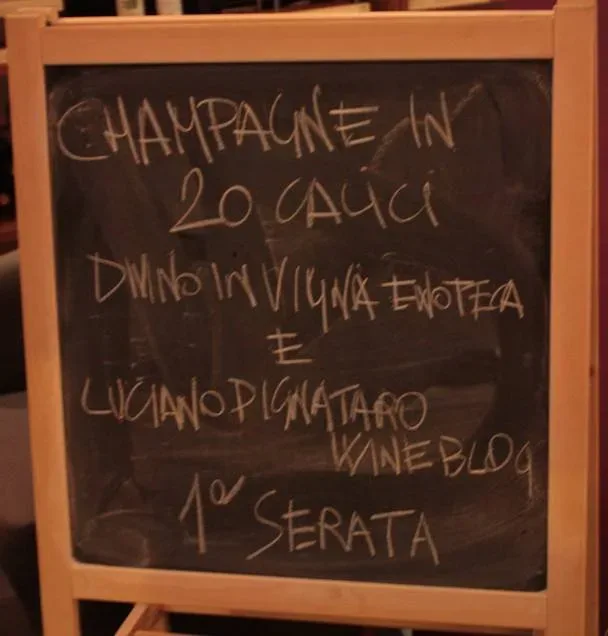 CHAMPAGNE IN
20 CALICI
DIVINO IN VIGNA ENOTECA
E
LUCIANO PIGNATARO
WINE BLOG
1ª SERATA